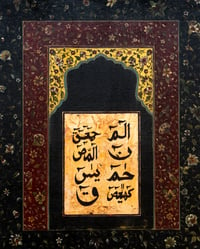 الم حمعسق
ن المص
حم يس
كهيعص ق